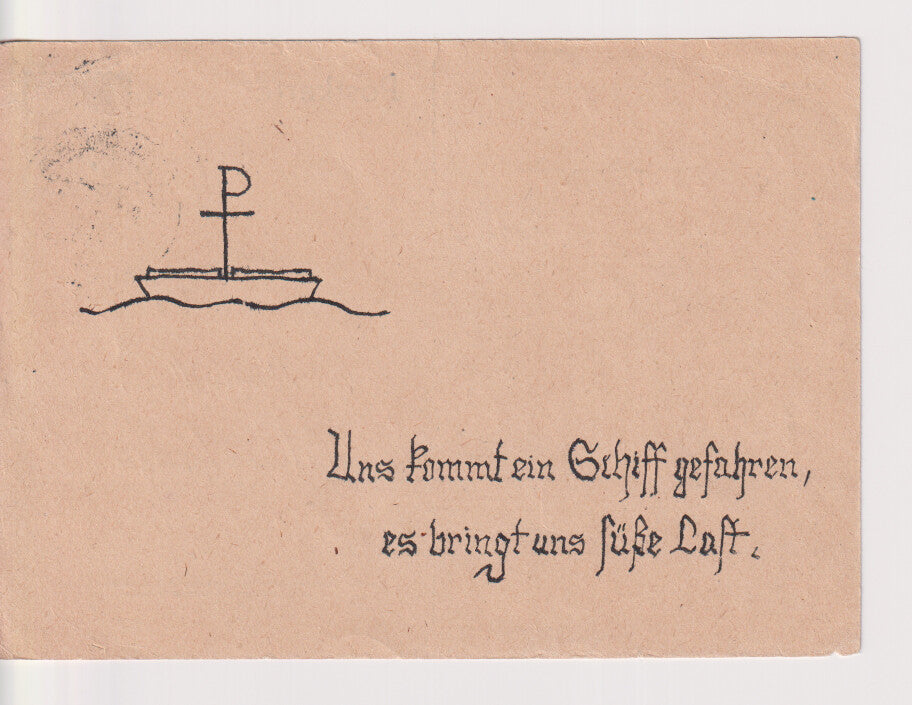 Uns kommt ein Schiff gefahren,
es bringt uns süße Last.